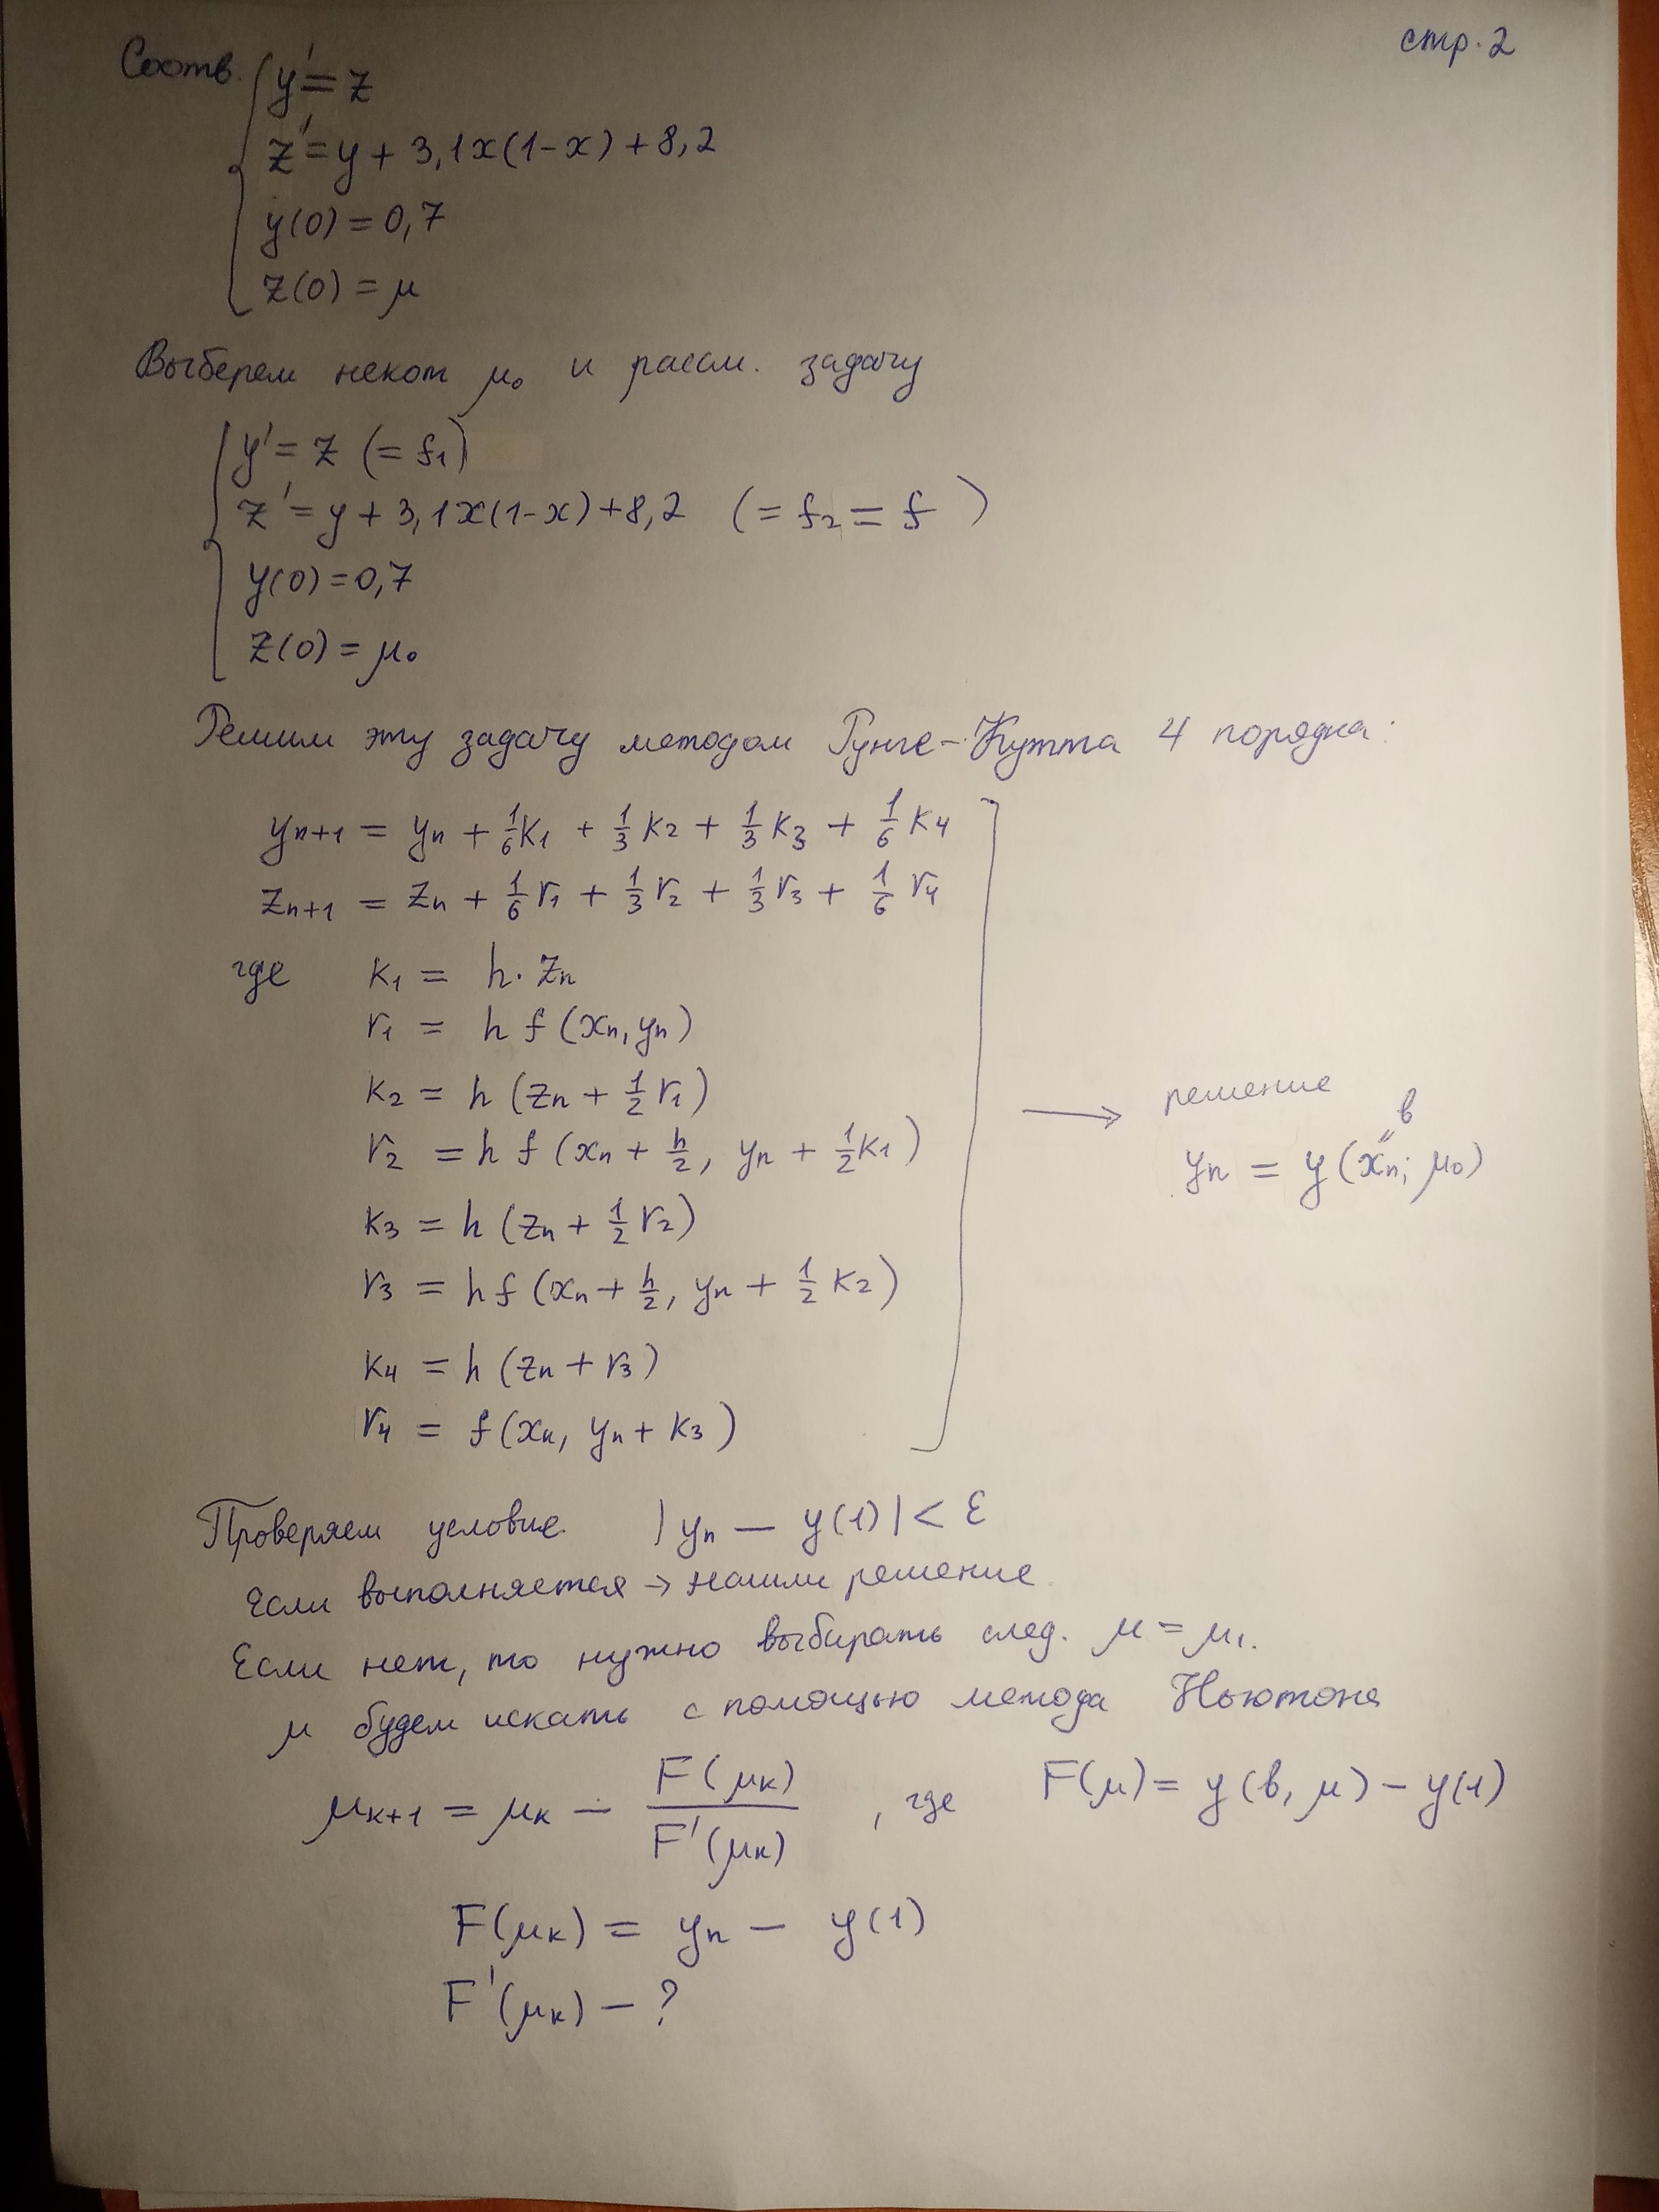 стр. 2
Соотв. { y' = z
z' = y + 3,1x(1-x) + 8,2
y(0) = 0,7
z(0) = μ
Выберем некот μ₀ и рассм. задачу
{ y' = z (= f₁)
z' = y + 3,1x(1-x) + 8,2 (= f₂ = f )
y(0) = 0,7
z(0) = μ₀
Решим эту задачу методом Рунге-Кутта 4 порядка:
yₙ₊₁ = yₙ + 1/6 k₁ + 1/3 k₂ + 1/3 k₃ + 1/6 k₄
zₙ₊₁ = zₙ + 1/6 r₁ + 1/3 r₂ + 1/3 r₃ + 1/6 r₄
где k₁ = h · zₙ
r₁ = h f (xₙ, yₙ)
k₂ = h (zₙ + 1/2 r₁)
r₂ = h f (xₙ + h/2, yₙ + 1/2 k₁)
k₃ = h (zₙ + 1/2 r₂)
r₃ = h f (xₙ + h/2, yₙ + 1/2 k₂)
k₄ = h (zₙ + r₃)
r₄ = f (xₙ, yₙ + k₃)
→ решение
в
"
yₙ = y (xₙ; μ₀)
Проверяем условие | yₙ – y(1) | < ε
Если выполняется → нашли решение
Если нет, то нужно выбирать след. μ = μ₁.
μ будем искать с помощью метода Ньютона
μₖ₊₁ = μₖ – F(μₖ) / F'(μₖ) , где F(μ) = y(в, μ) – y(1)
F(μₖ) = yₙ – y(1)
F'(μₖ) – ?